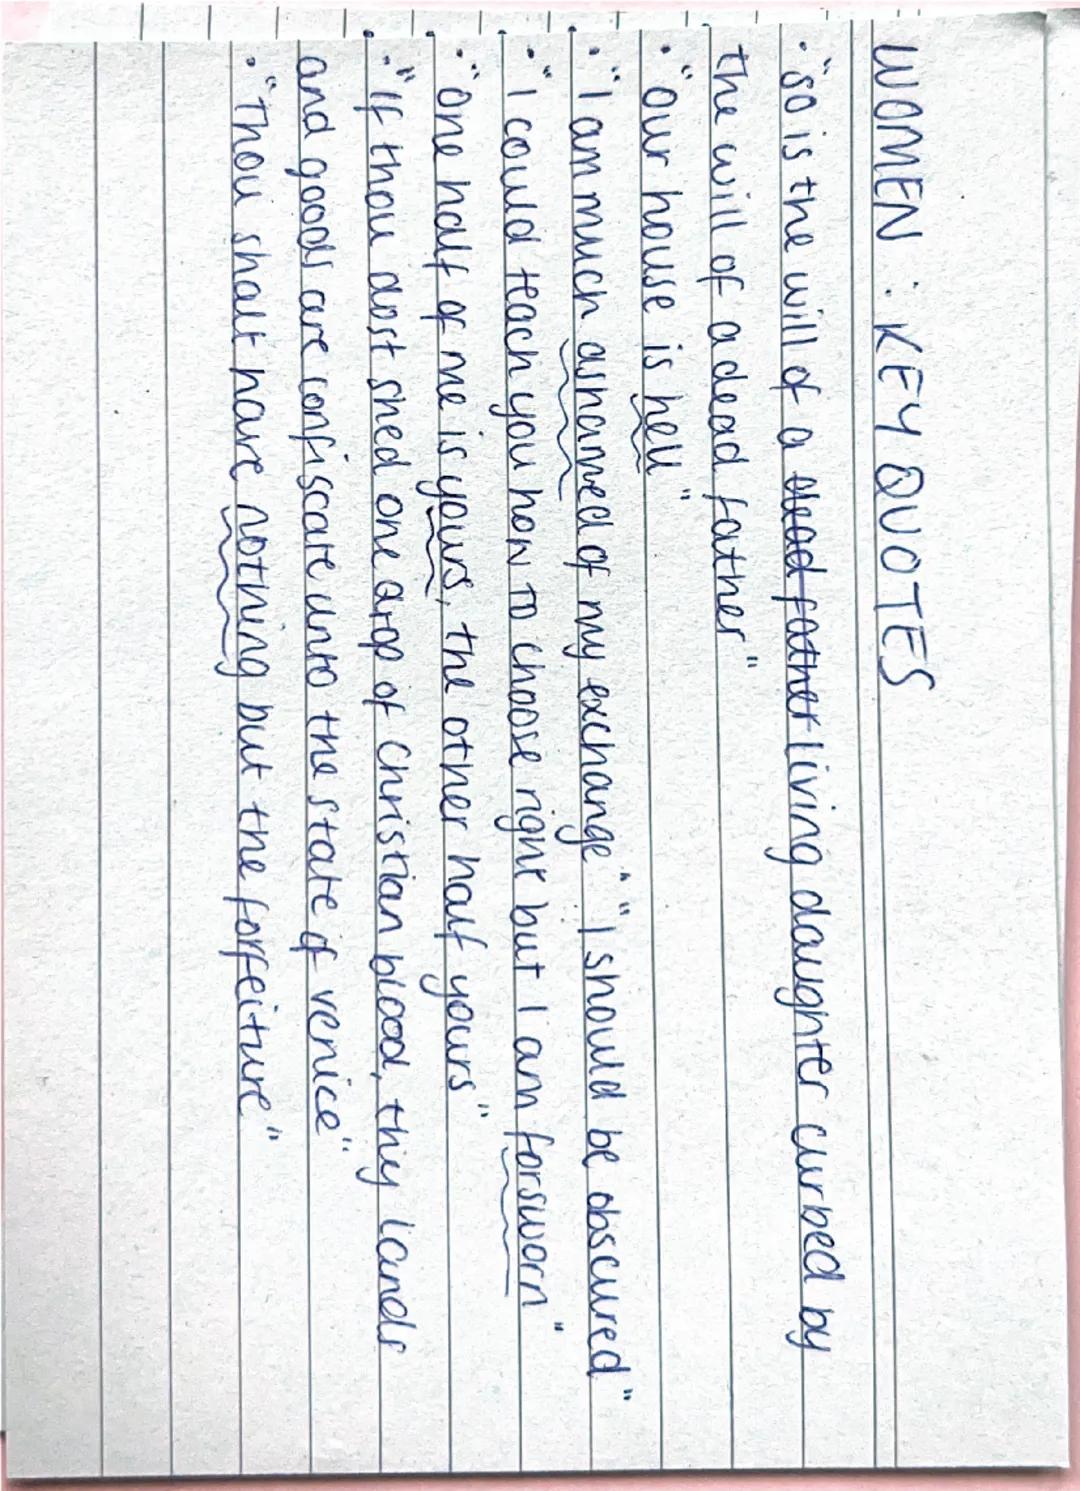 WOMEN : KEY QUOTES
• "so is the will of a dead father living daughter curbed by
the will of a dead father"
• "our house is hell"
• "I am much ashamed of my exchange" "I should be obscured"
• "I could teach you how to choose right but I am forsworn"
• "one half of me is yours, the other half yours"
• "If thou dost shed one drop of christian blood, thy lands
and goods are confiscate unto the state of venice"
• "Thou shalt have nothing but the forfeiture"